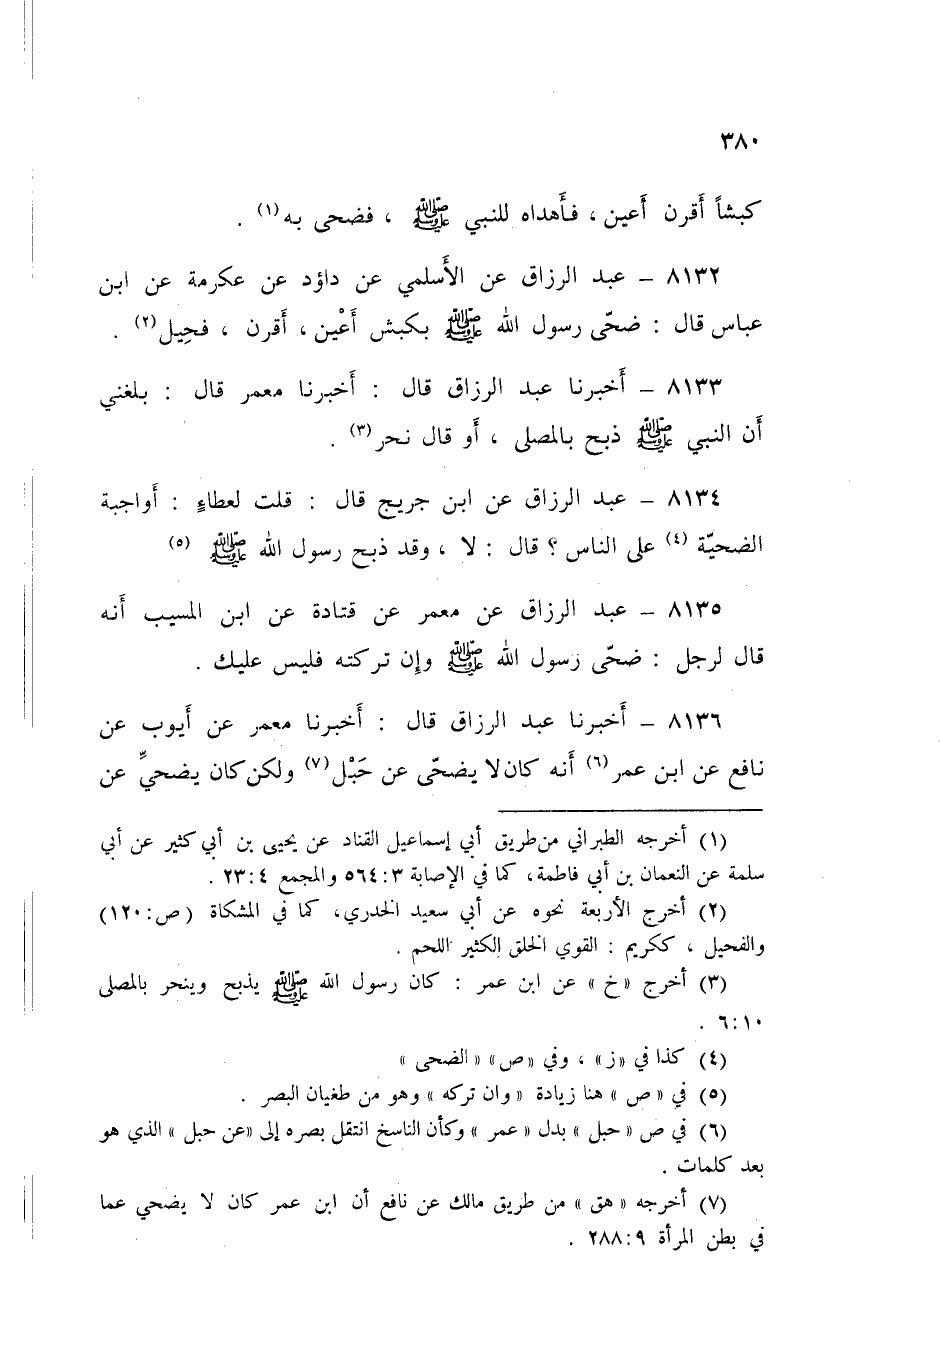 ٣٨٠
كبشاً أَقرن أَعين ، فأَهداه للنبي ﷺ ، فضحى به(١) .
٨١٣٢ – عبد الرزاق عن الأَسلمي عن داؤد عن عكرمة عن ابن
عباس قال : ضحّى رسول الله ﷺ بكبش أَعْين ، أَقرن ، فحِيل(٢) .
٨١٣٣ – أَخبرنا عبد الرزاق قال : أَخبرنا معمر قال : بلغني
أَن النبي ﷺ ذبح بالمصلى ، أَو قال نحر(٣) .
٨١٣٤ – عبد الرزاق عن ابن جريج قال : قلت لعطاءٍ : أَواجبة
الضحيّة (٤) على الناس ؟ قال : لا ، وقد ذبح رسول الله ﷺ (٥)
٨١٣٥ – عبد الرزاق عن معمر عن قتادة عن ابن المسيب أَنه
قال لرجل : ضحّى رسول الله ﷺ وإِن تركته فليس عليك .
٨١٣٦ – أَخبرنا عبد الرزاق قال : أَخبرنا معمر عن أَيوب عن
نافع عن ابن عمر(٦) أَنه كان لا يضحّى عن حَبْل(٧) ولكن كان يضحيِّ عن
(١) أخرجه الطبراني من طريق أبي إسماعيل القناد عن يحيى بن أبي كثير عن أبي
سلمة عن النعمان بن أبي فاطمة ، كما في الإصابة ٣ : ٥٦٤ والمجمع ٤ : ٢٣ .
(٢) أخرج الأربعة نحوه عن أبي سعيد الخدري ، كما في المشكاة (ص : ١٢٠)
والفحيل ، ككريم : القوي الخلق الكثير اللحم .
(٣) أخرج «خ» عن ابن عمر : كان رسول الله ﷺ يذبح وينحر بالمصلى
١٠ : ٦ .
(٤) كذا في «ز» ، وفي «ص» «الضحى»
(٥) في «ص» هنا زيادة «وان تركه» وهو من طغيان البصر .
(٦) في ص «حبل» بدل «عمر» وكأن الناسخ انتقل بصره إلى «عن حبل» الذي هو
بعد كلمات .
(٧) أخرجه «هق» من طريق مالك عن نافع أن ابن عمر كان لا يضحي عما
في بطن المرأة ٩ : ٢٨٨ .